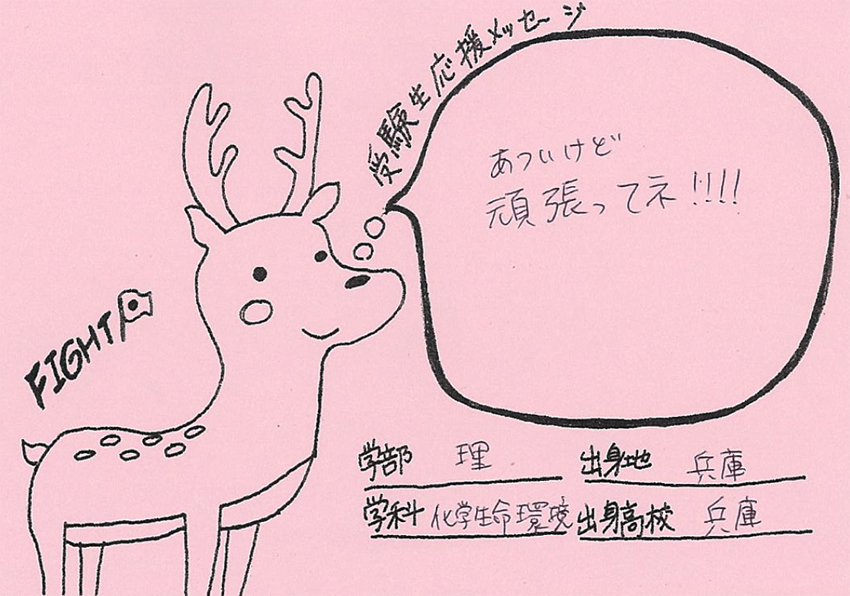 受験生応援メッセージ
あついけど
頑張ってネ!!!!
FIGHT
学部 理
出身地 兵庫
学科 化学生命環境
出身高校 兵庫